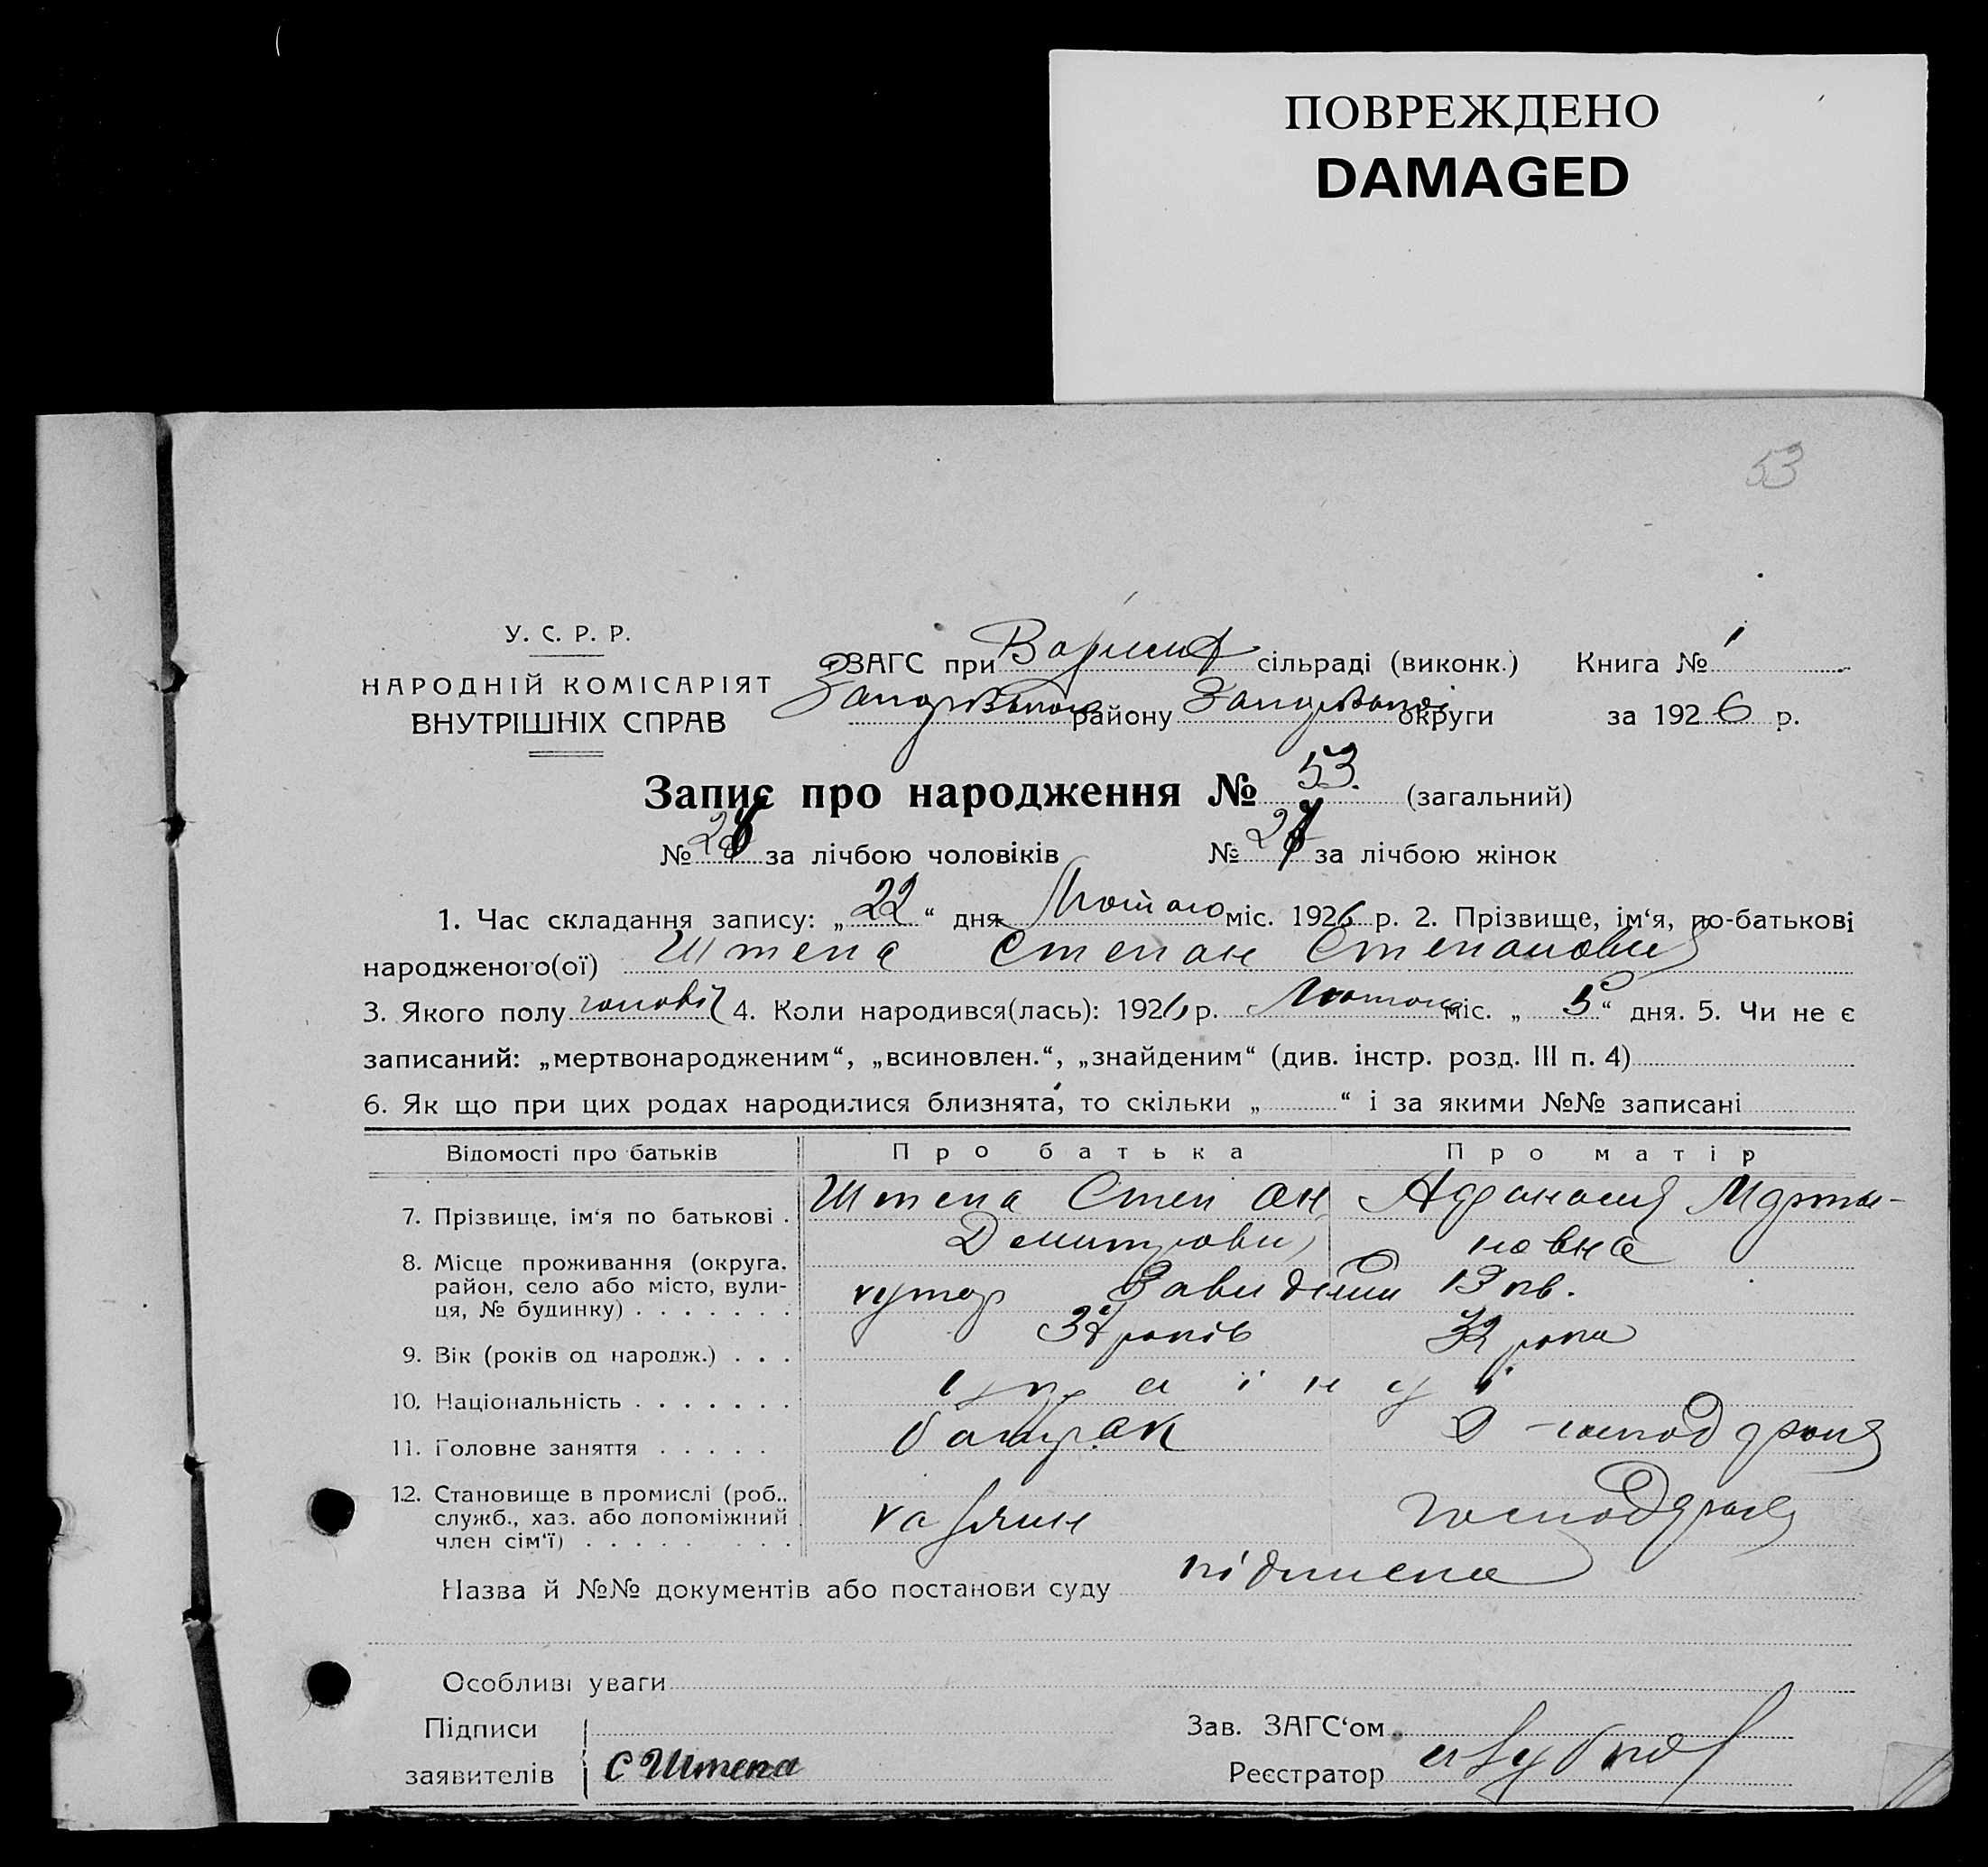 ПОВРЕЖДЕНО
DAMAGED
53
У. С. Р. Р.
НАРОДНІЙ КОМІСАРІЯТ
ВНУТРІШНІХ СПРАВ
ЗАГС при сільраді (виконк.) Книга № 1
району округи за 1926 р.
Запис про народження № 53 (загальний)
№ за лічбою чоловіків № за лічбою жінок
1. Час складання запису: „22“ дня Лютого міс. 1926 р. 2. Прізвище, ім‘я, по-батькові
народженого(ої) Штепа Степан Степанович
3. Якого полу чоловіч 4. Коли народився(лась): 1926 р. Лютого міс. „5“ дня. 5. Чи не є
записаний: „мертвонародженим“, „всиновлен.“, „знайденим“ (див. інстр. розд. III п. 4)
6. Як що при цих родах народилися близнята, то скільки „ “ і за якими №№ записані
Відомості про батьків Про батька Про матір
7. Прізвище, ім‘я по батькові . Штепа Степан Марти-
Демитрович новна
8. Місце проживання (округа,
район, село або місто, вули-
ця, № будинку) . . . . . . . хутор
9. Вік (років од народж.) . . . років 32 роки
10. Національність . . . . . . . україн ці
11. Головне заняття . . . . . батрак
12. Становище в промислі (роб.,
служб., хаз. або допоміжний
член сім‘ї) . . . . . . . . господарка
Назва й №№ документів або постанови суду підписка
Особливі уваги
Підписи
заявителів С Штепа
Зав. ЗАГС‘ом
Реєстратор